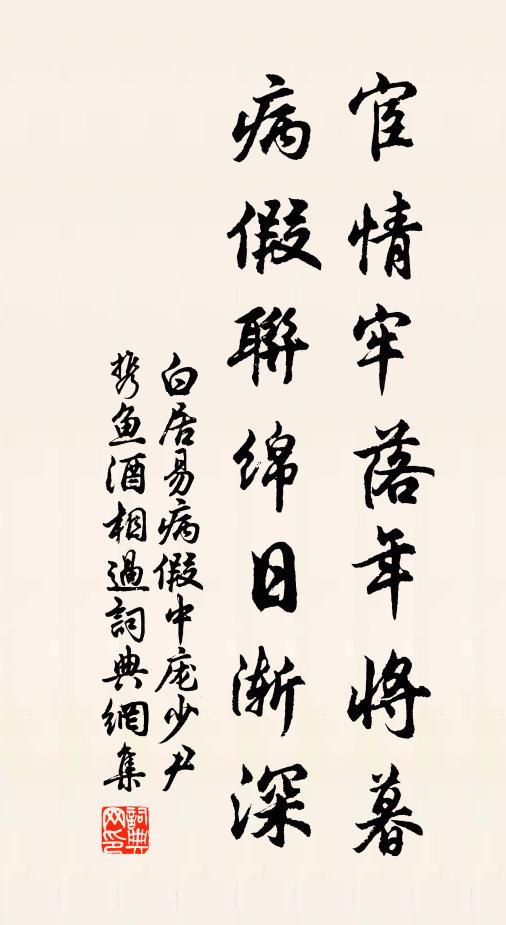 宦情牢落年将暮
病假聯绵日渐深
白居易病假中庞少尹
携鱼酒相過詞典網集
詞典网印